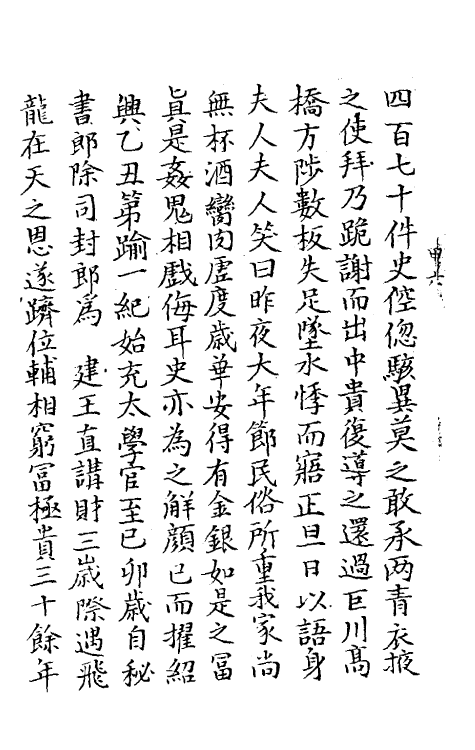 四百七十件史倥偬駭異莫之敢承两青衣掖
之使拜乃跪謝而出中貴復導之還過巨川髙
橋方陟數板失足墜水悸而寤正旦日以語身
夫人夫人笑曰昨夜大年節民俗所重我家尚
無杯酒臠肉虛度歲華安得有金銀如是之冨
眞是姦鬼相戲侮耳史亦為之解顔已而擢紹
興乙丑第踰一紀始充太學官至已卯歲自秘
書郎除司封郎爲　建王直講財三歲際遇飛
龍在天之恩遂躋位輔相窮冨極貴三十餘年